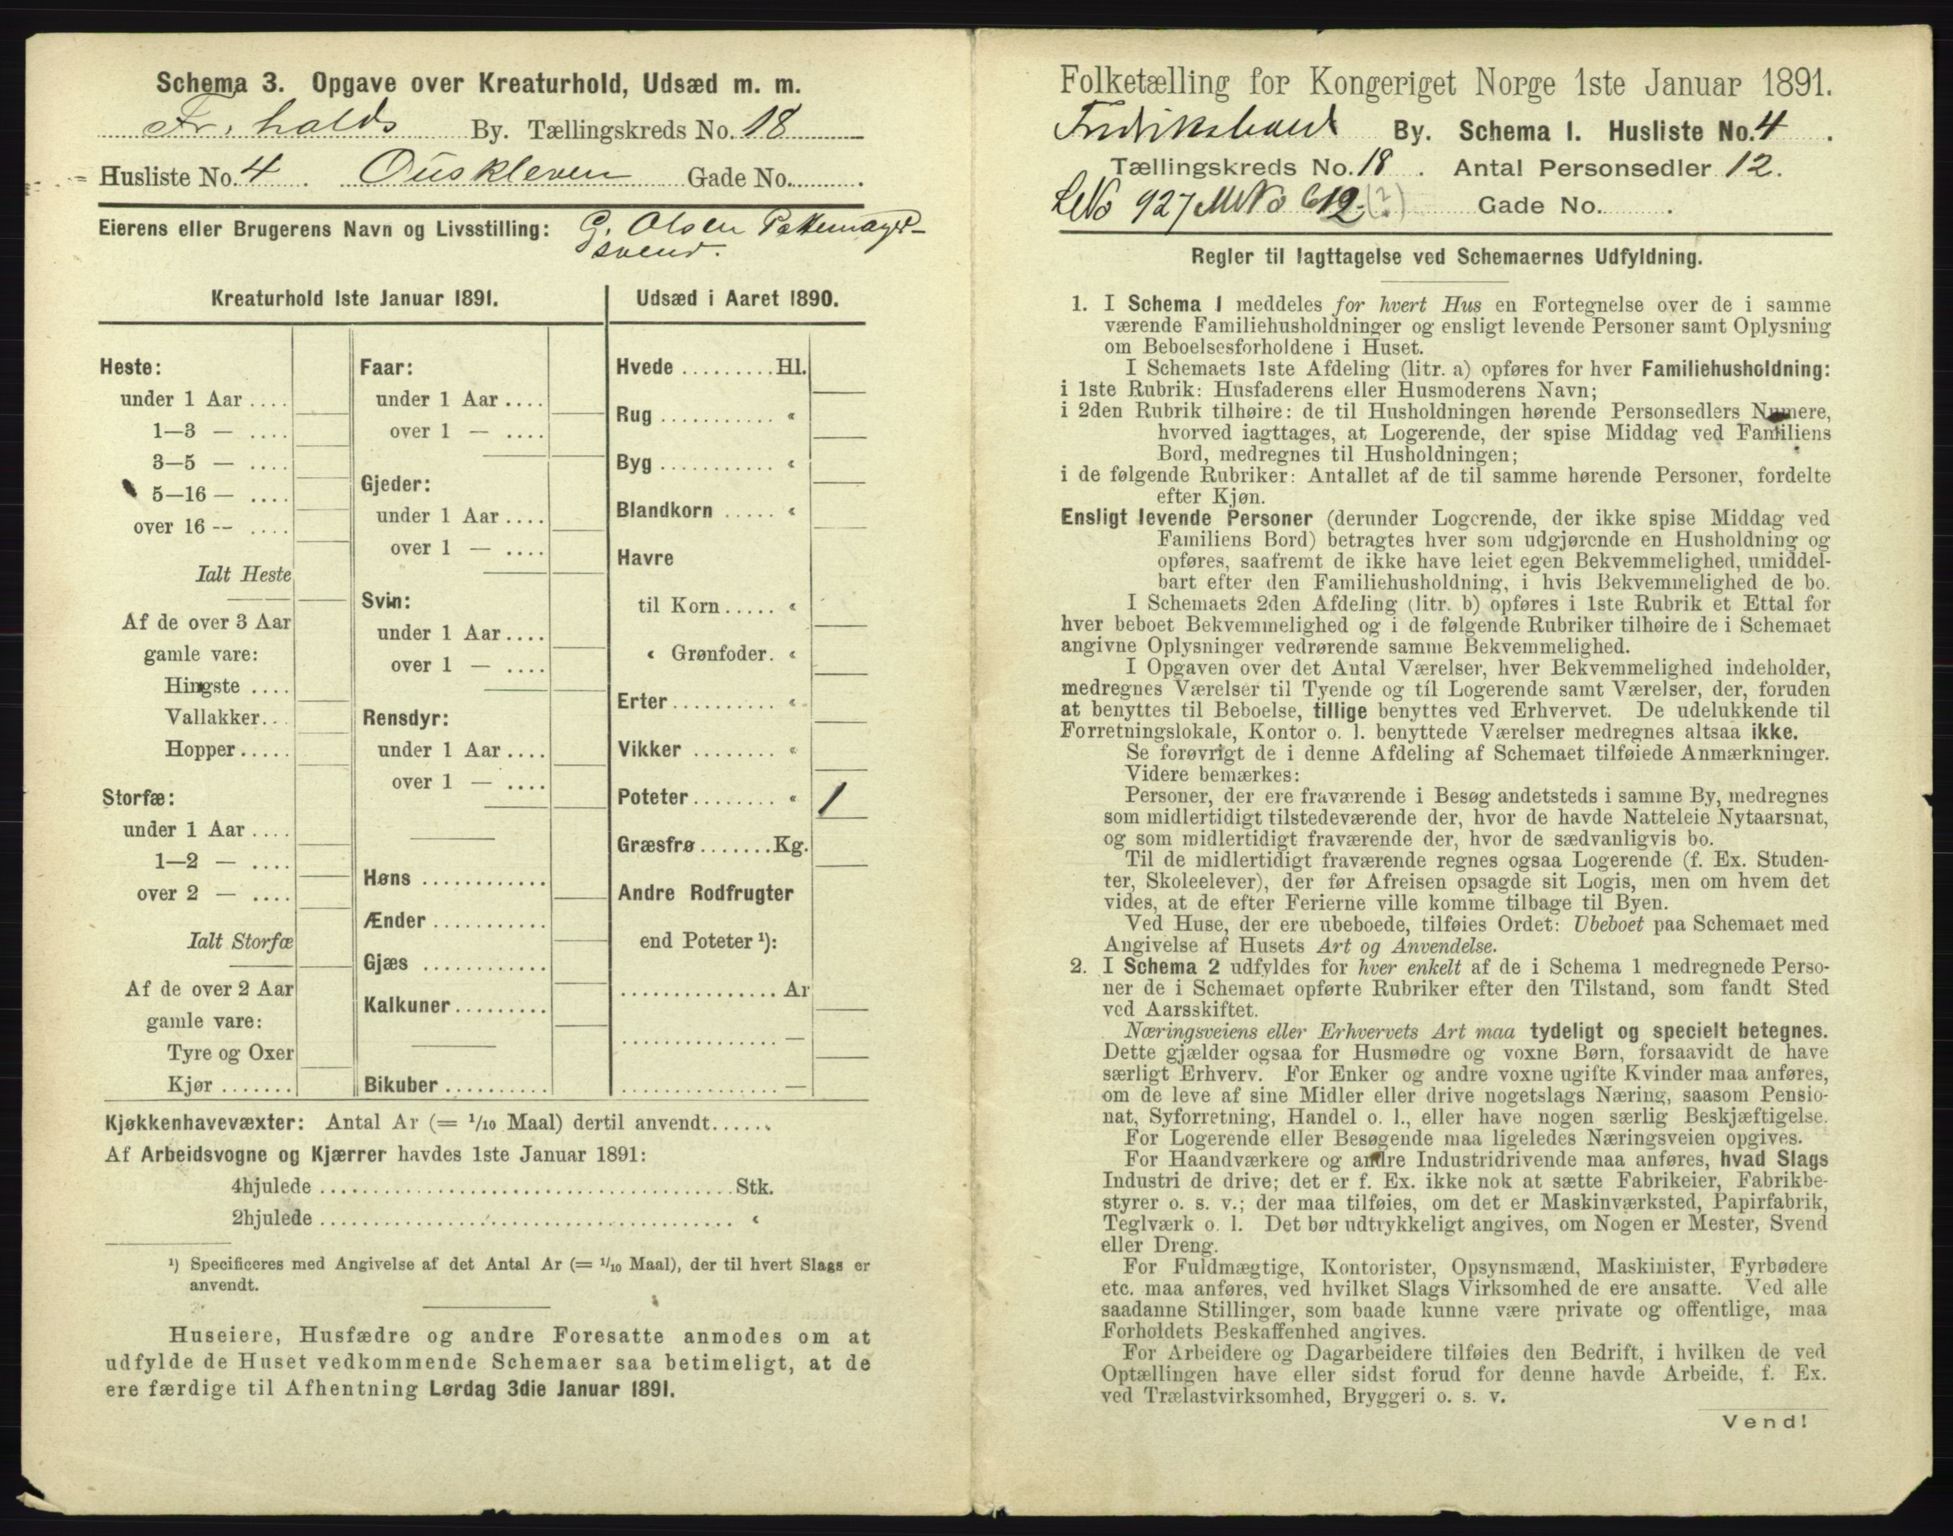 Schema 3. Opgave over Kreaturhold, Udsæd m. m.
Fr. halds By. Tællingskreds No. 18
Husliste No. 4. Ouskleven Gade No.
Eierens eller Brugerens Navn og Livsstilling: G. Olsen
svend.
Kreaturhold 1ste Januar 1891.
Heste:
under 1 Aar ....
1—3 — ....
3—5 — ....
5—16 — ....
over 16 — ....
Ialt Heste
Af de over 3 Aar
gamle vare:
Hingste ....
Vallakker...
Hopper.....
Storfæ:
under 1 Aar ....
1—2 — ....
over 2 — ....
Ialt Storfæ
Af de over 2 Aar
gamle vare:
Tyre og Oxer
Kjør .......
Faar:
under 1 Aar ....
over 1 — ....
Gjeder:
under 1 Aar ....
over 1 — ....
Svin:
under 1 Aar ....
over 1 — ....
Rensdyr:
under 1 Aar ....
over 1 — ....
Høns ............
Ænder ...........
Gjæs ............
Kalkuner.........
Bikuber ..........
Udsæd i Aaret 1890.
Hvede .........Hl.
Rug ........... «
Byg ........... «
Blandkorn ..... «
Havre
til Korn ..... «
« Grønfoder. «
Erter.......... «
Vikker ........ «
Poteter ........ « 1
Græsfrø.......Kg.
Andre Rodfrugter
end Poteter ¹):
............... Ar
............... —
............... —
Kjøkkenhavevæxter: Antal Ar (= 1/10 Maal) dertil anvendt......
Af Arbeidsvogne og Kjærrer havdes 1ste Januar 1891:
4hjulede ........................................Stk.
2hjulede ........................................ «
¹) Specificeres med Angivelse af det Antal Ar (= 1/10 Maal), der til hvert Slags er
anvendt.
Huseiere, Husfædre og andre Foresatte anmodes om at
udfylde de Huset vedkommende Schemaer saa betimeligt, at de
ere færdige til Afhentning Lørdag 3die Januar 1891.
Folketælling for Kongeriget Norge 1ste Januar 1891.
Fredrikshald By. Schema 1. Husliste No. 4.
Tællingskreds No. 18. Antal Personsedler 12.
LNo 927 MNo 612 (?) Gade No. .
Regler til Iagttagelse ved Schemaernes Udfyldning.
1. I Schema 1 meddeles for hvert Hus en Fortegnelse over de i samme
værende Familiehusholdninger og ensligt levende Personer samt Oplysning
om Beboelsesforholdene i Huset.
I Schemaets 1ste Afdeling (litr. a) opføres for hver Familiehusholdning:
i 1ste Rubrik: Husfaderens eller Husmoderens Navn;
i 2den Rubrik tilhøire: de til Husholdningen hørende Personsedlers Numere,
hvorved iagttages, at Logerende, der spise Middag ved Familiens
Bord, medregnes til Husholdningen;
i de følgende Rubriker: Antallet af de til samme hørende Personer, fordelte
efter Kjøn.
Ensligt levende Personer (derunder Logerende, der ikke spise Middag ved
Familiens Bord) betragtes hver som udgjørende en Husholdning og
opføres, saafremt de ikke have leiet egen Bekvemmelighed, umiddel-
bart efter den Familiehusholdning, i hvis Bekvemmelighed de bo.
I Schemaets 2den Afdeling (litr. b) opføres i 1ste Rubrik et Ettal for
hver beboet Bekvemmelighed og i de følgende Rubriker tilhøire de i Schemaet
angivne Oplysninger vedrørende samme Bekvemmelighed.
I Opgaven over det Antal Værelser, hver Bekvemmelighed indeholder,
medregnes Værelser til Tyende og til Logerende samt Værelser, der, foruden
at benyttes til Beboelse, tillige benyttes ved Erhvervet. De udelukkende til
Forretningslokale, Kontor o. l. benyttede Værelser medregnes altsaa ikke.
Se forøvrigt de i denne Afdeling af Schemaet tilføiede Anmærkninger.
Videre bemærkes:
Personer, der ere fraværende i Besøg andetsteds i samme By, medregnes
som midlertidigt tilstedeværende der, hvor de havde Natteleie Nytaarsnat,
og som midlertidigt fraværende der, hvor de sædvanligvis bo.
Til de midlertidigt fraværende regnes ogsaa Logerende (f. Ex. Studen-
ter, Skoleelever), der før Afreisen opsagde sit Logis, men om hvem det
vides, at de efter Ferierne ville komme tilbage til Byen.
Ved Huse, der ere ubeboede, tilføies Ordet: Ubeboet paa Schemaet med
Angivelse af Husets Art og Anvendelse.
2. I Schema 2 udfyldes for hver enkelt af de i Schema 1 medregnede Perso-
ner de i Schemaet opførte Rubriker efter den Tilstand, som fandt Sted
ved Aarsskiftet.
Næringsveiens eller Erhvervets Art maa tydeligt og specielt betegnes.
Dette gjælder ogsaa for Husmødre og voxne Børn, forsaavidt de have
særligt Erhverv. For Enker og andre voxne ugifte Kvinder maa anføres,
om de leve af sine Midler eller drive nogetslags Næring, saasom Pensio-
nat, Syforretning, Handel o. l., eller have nogen særlig Beskjæftigelse.
For Logerende eller Besøgende maa ligeledes Næringsveien opgives.
For Haandværkere og andre Industridrivende maa anføres, hvad Slags
Industri de drive; det er f. Ex. ikke nok at sætte Fabrikeier, Fabrikbe-
styrer o. s. v.; der maa tilføies, om det er Maskinværksted, Papirfabrik,
Teglværk o. l. Det bør udtrykkeligt angives, om Nogen er Mester, Svend
eller Dreng.
For Fuldmægtige, Kontorister, Opsynsmænd, Maskinister, Fyrbødere
etc. maa anføres, ved hvilket Slags Virksomhed de ere ansatte. Ved alle
saadanne Stillinger, som baade kunne være private og offentlige, maa
Forholdets Beskaffenhed angives.
For Arbeidere og Dagarbeidere tilføies den Bedrift, i hvilken de ved
Optællingen have eller sidst forud for denne havde Arbeide, f. Ex.
ved Trælastvirksomhed, Bryggeri o. s. v.
Vend!